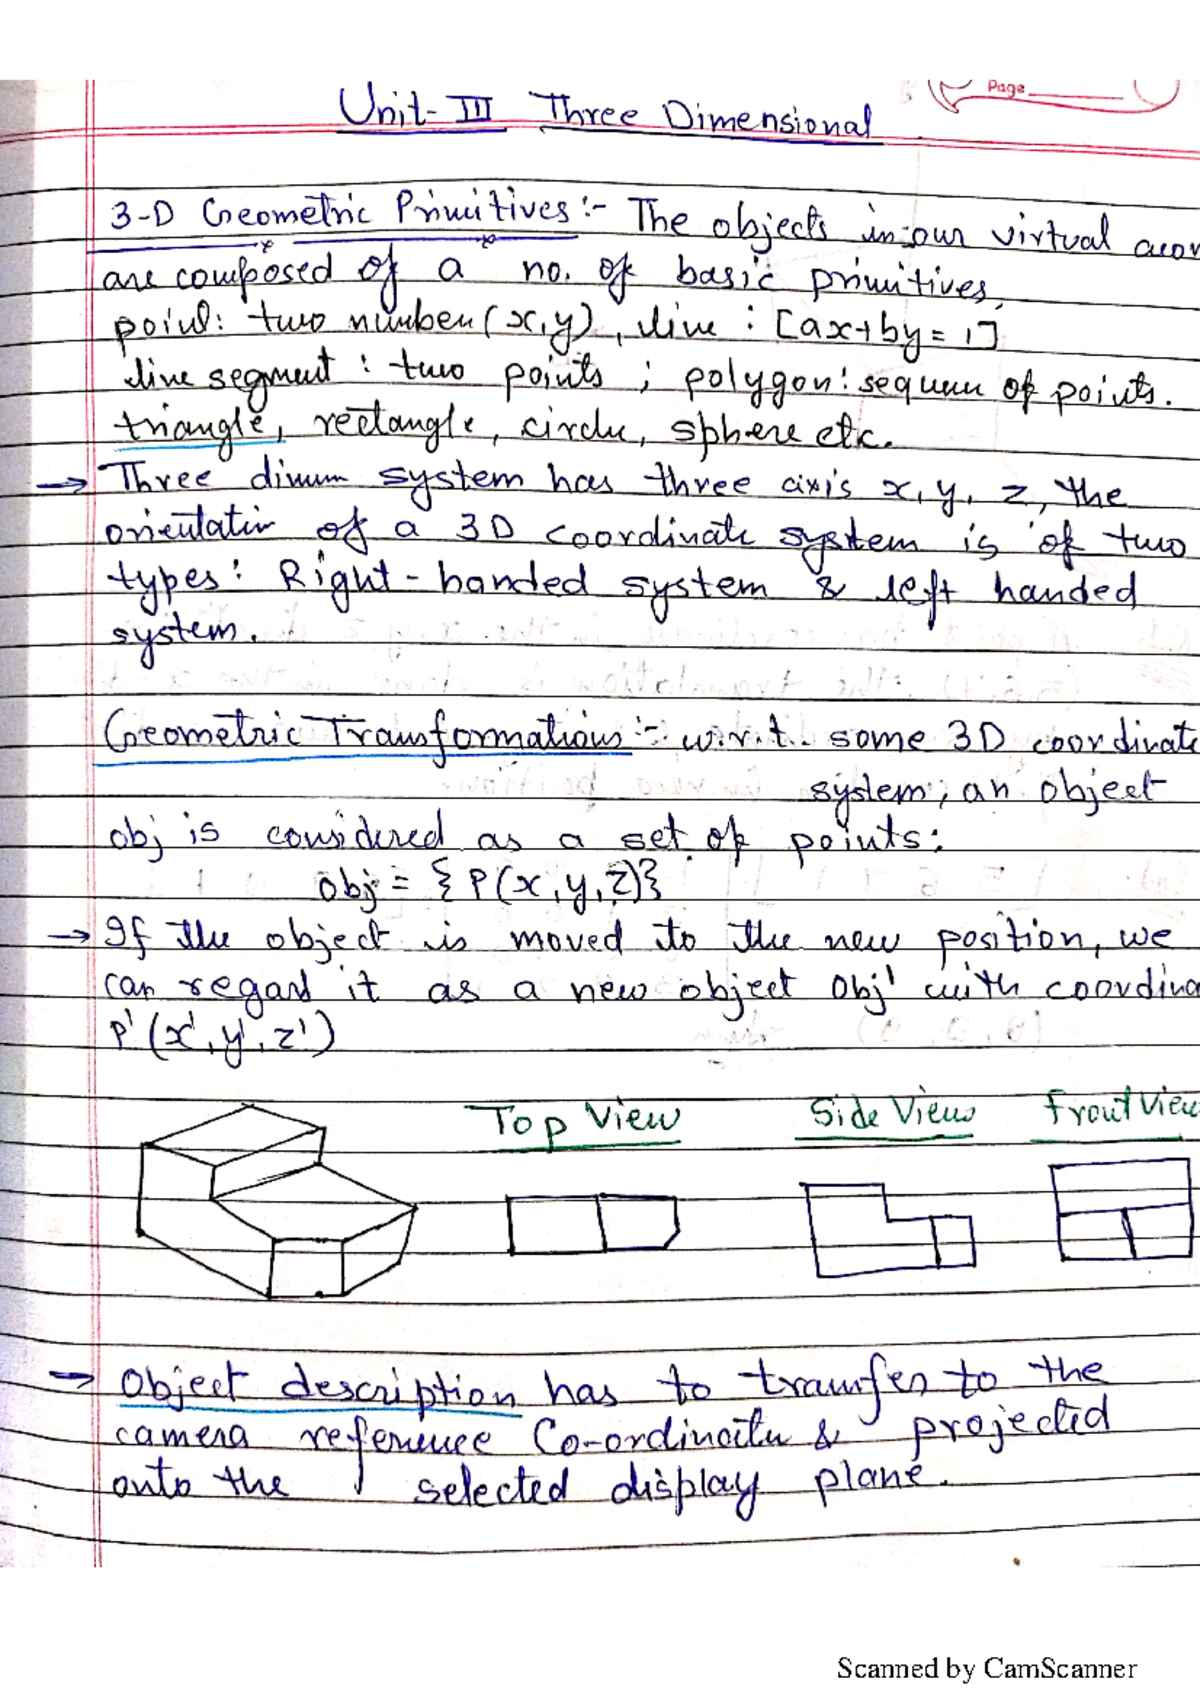 Page
Unit-III Three Dimensional
3-D Geometric Primitives :- The objects in our virtual
are composed of a no. of basic primitives,
point: two number (x,y), line : [ax+by=1]
line segment : two points ; polygon: sequen of points.
triangle, rectangle, circle, sphere etc.
→ Three dimen system has three axis x, y, z, the
orientation of a 3D coordinate system is of two
types: Right-handed system & left handed
system.
Geometric Transformations :- w.r.t. some 3D coordinate
system, an object
obj is considered as a set of points:
obj = { P(x,y,z)}
→ If the object is moved to the new position, we
can regard it as a new object obj' with coordina
P'(x', y', z')
Top View Side View Front View
→ Object description has to transfer to the
camera reference Co-ordinate & projected
onto the selected display plane.
Scanned by CamScanner